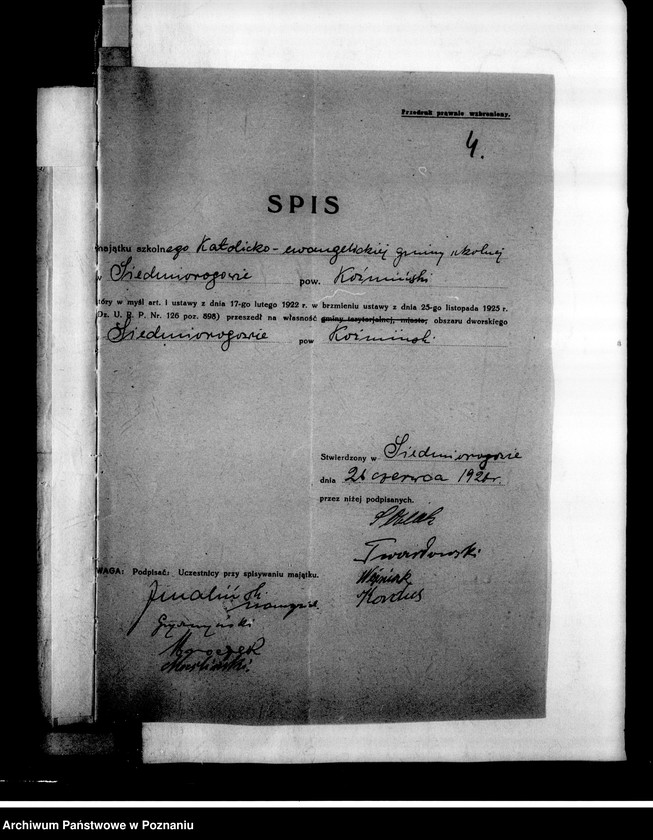 Przedruk prawnie wzbroniony.
4.
SPIS
majątku szkolnego Katolicko-ewangelickiej gminy szkolnej
w Siedmiorogowie pow. Koźmiński
który w myśl art. I ustawy z dnia 17-go lutego 1922 r. w brzmieniu ustawy z dnia 25-go listopada 1925 r.
Dz. U. R. P. Nr. 126 poz. 898) przeszedł na własność gminy terytorjalnej, miasta, obszaru dworskiego
Siedmiorogowie pow Koźmiński
Stwierdzony w Siedmiorogowie
dnia 26 czerwca 1926 r.
przez niżej podpisanych.
Twardowski
Woźniak
UWAGA: Podpisać: Uczestnicy przy spisywaniu majątku.
Archiwum Państwowe w Poznaniu